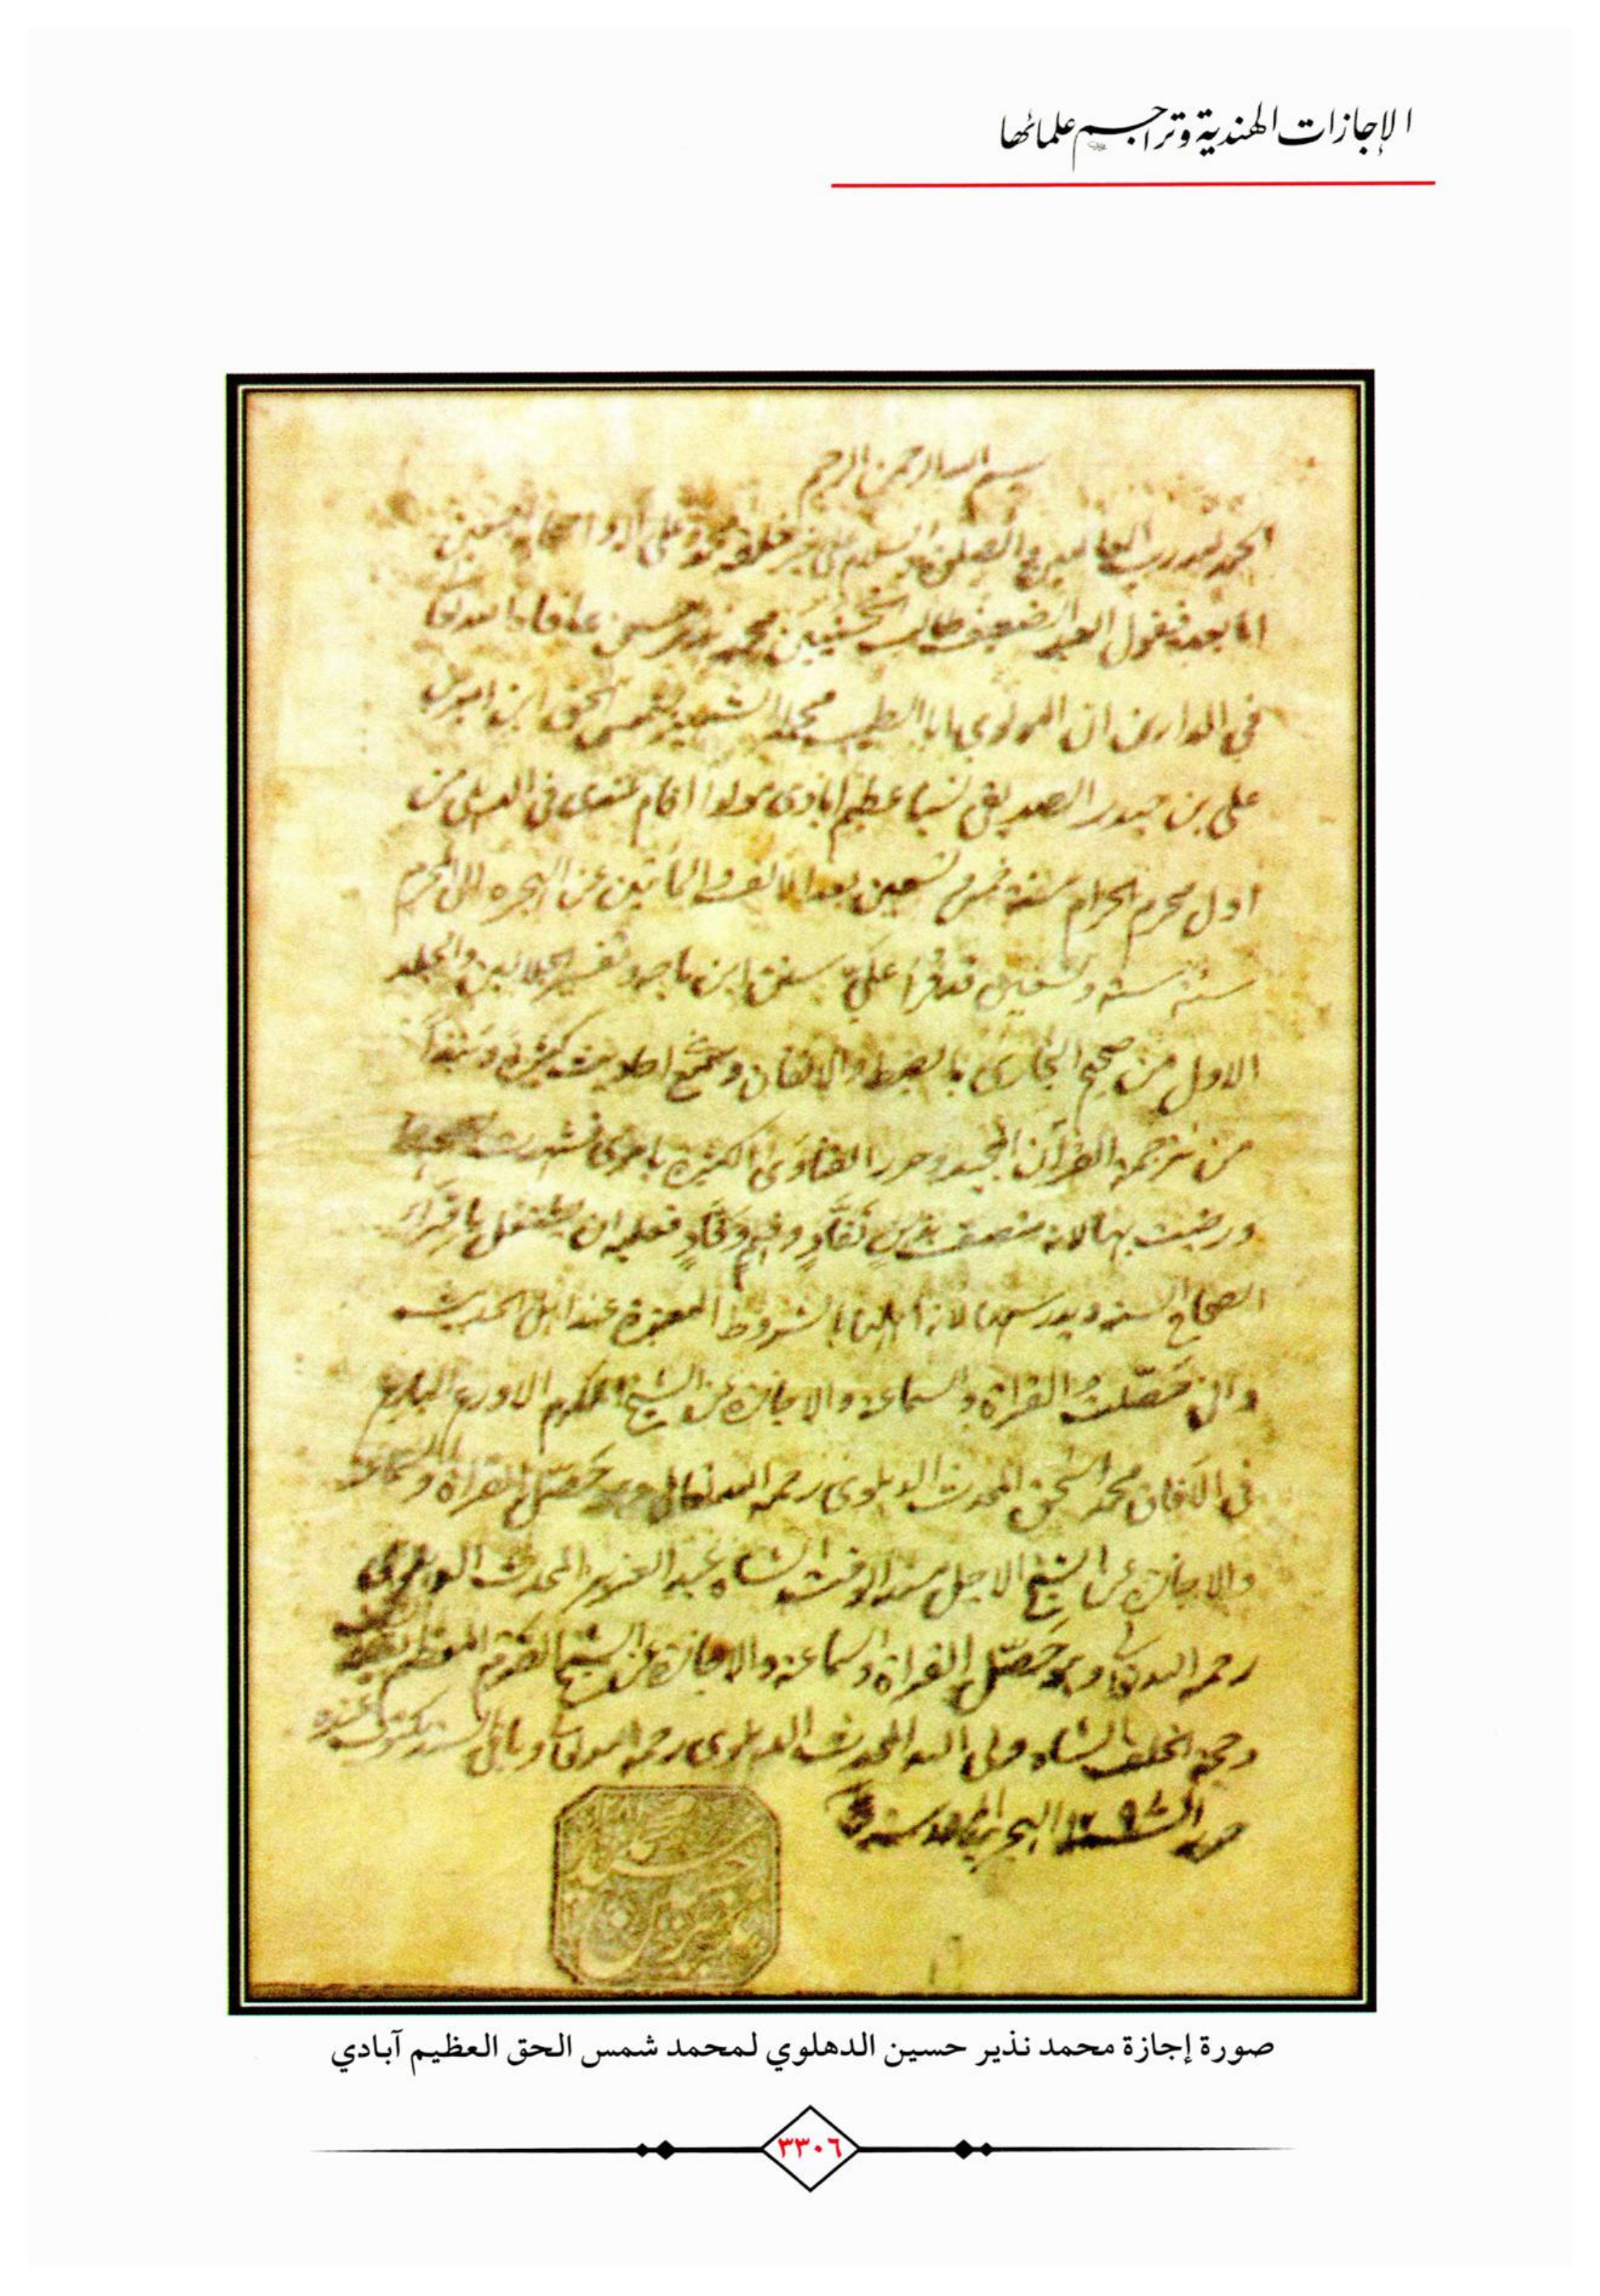 الإجازات الهندية وتراجم علمائها
بسم الله الرحمن الرحيم
الحمد لله رب العالمين والصلوة والسلام على خير خلقه محمد وعلى اله واصحابه اجمعين
اما بعد فيقول العبد الضعيف طالب الحسنيين محمد نذير حسين عافاه الله تعا
في الدارين ان المولوي ابا الطيب محمد الشهير بشمس الحق ابن امير
علي بن حيدر الصديقي نسبا عظيم ابادى مولدا اقام عندى في الدهلي من
اول محرم الحرام سنة خمس وتسعين بعد الالف والمأتين من الهجرة الى المحرم
سنة ست وتسعين قد قرأ عليّ سنن ابن ماجه وتفسير الجلالين والجلد
الاول من صحيح البخارى بالضبط والاتقان وسمع احاديث كثيرة و
من ترجمة القرآن المجيد وحرر الفتاوى الكثيرة بامرى
ورضيت بها لانه منصف نقّادٍ وفهيم وقّادٍ فعليه ان يشتغل باقراء
الصحاح الستة ويدرسها لانه اهلها بالشروط المعتبرة عند اهل الحديث
واني حصّلت القراة والسماعة والاجازة عن الشيخ المكرم الاورع البارع
في الآفاق محمد اسحق المحدث الدهلوى رحمه الله تعالى وهو حصّل القراة والسماعة
والاجازة عن الشيخ الاجل مسند الوقت الشاه عبد العزيز المحدث الدهلوى
رحمه الله تعا وهو حصّل القراة والسماعة والاجازة عن الشيخ القرم المعظم بقية السلف
وحجة الخلف الشاه ولى الله المحدث الدهلوى رحمه الله تعا وباقي السند مكتوب عنده
صورة إجازة محمد نذير حسين الدهلوي لمحمد شمس الحق العظيم آبادي
٣٣٠٦